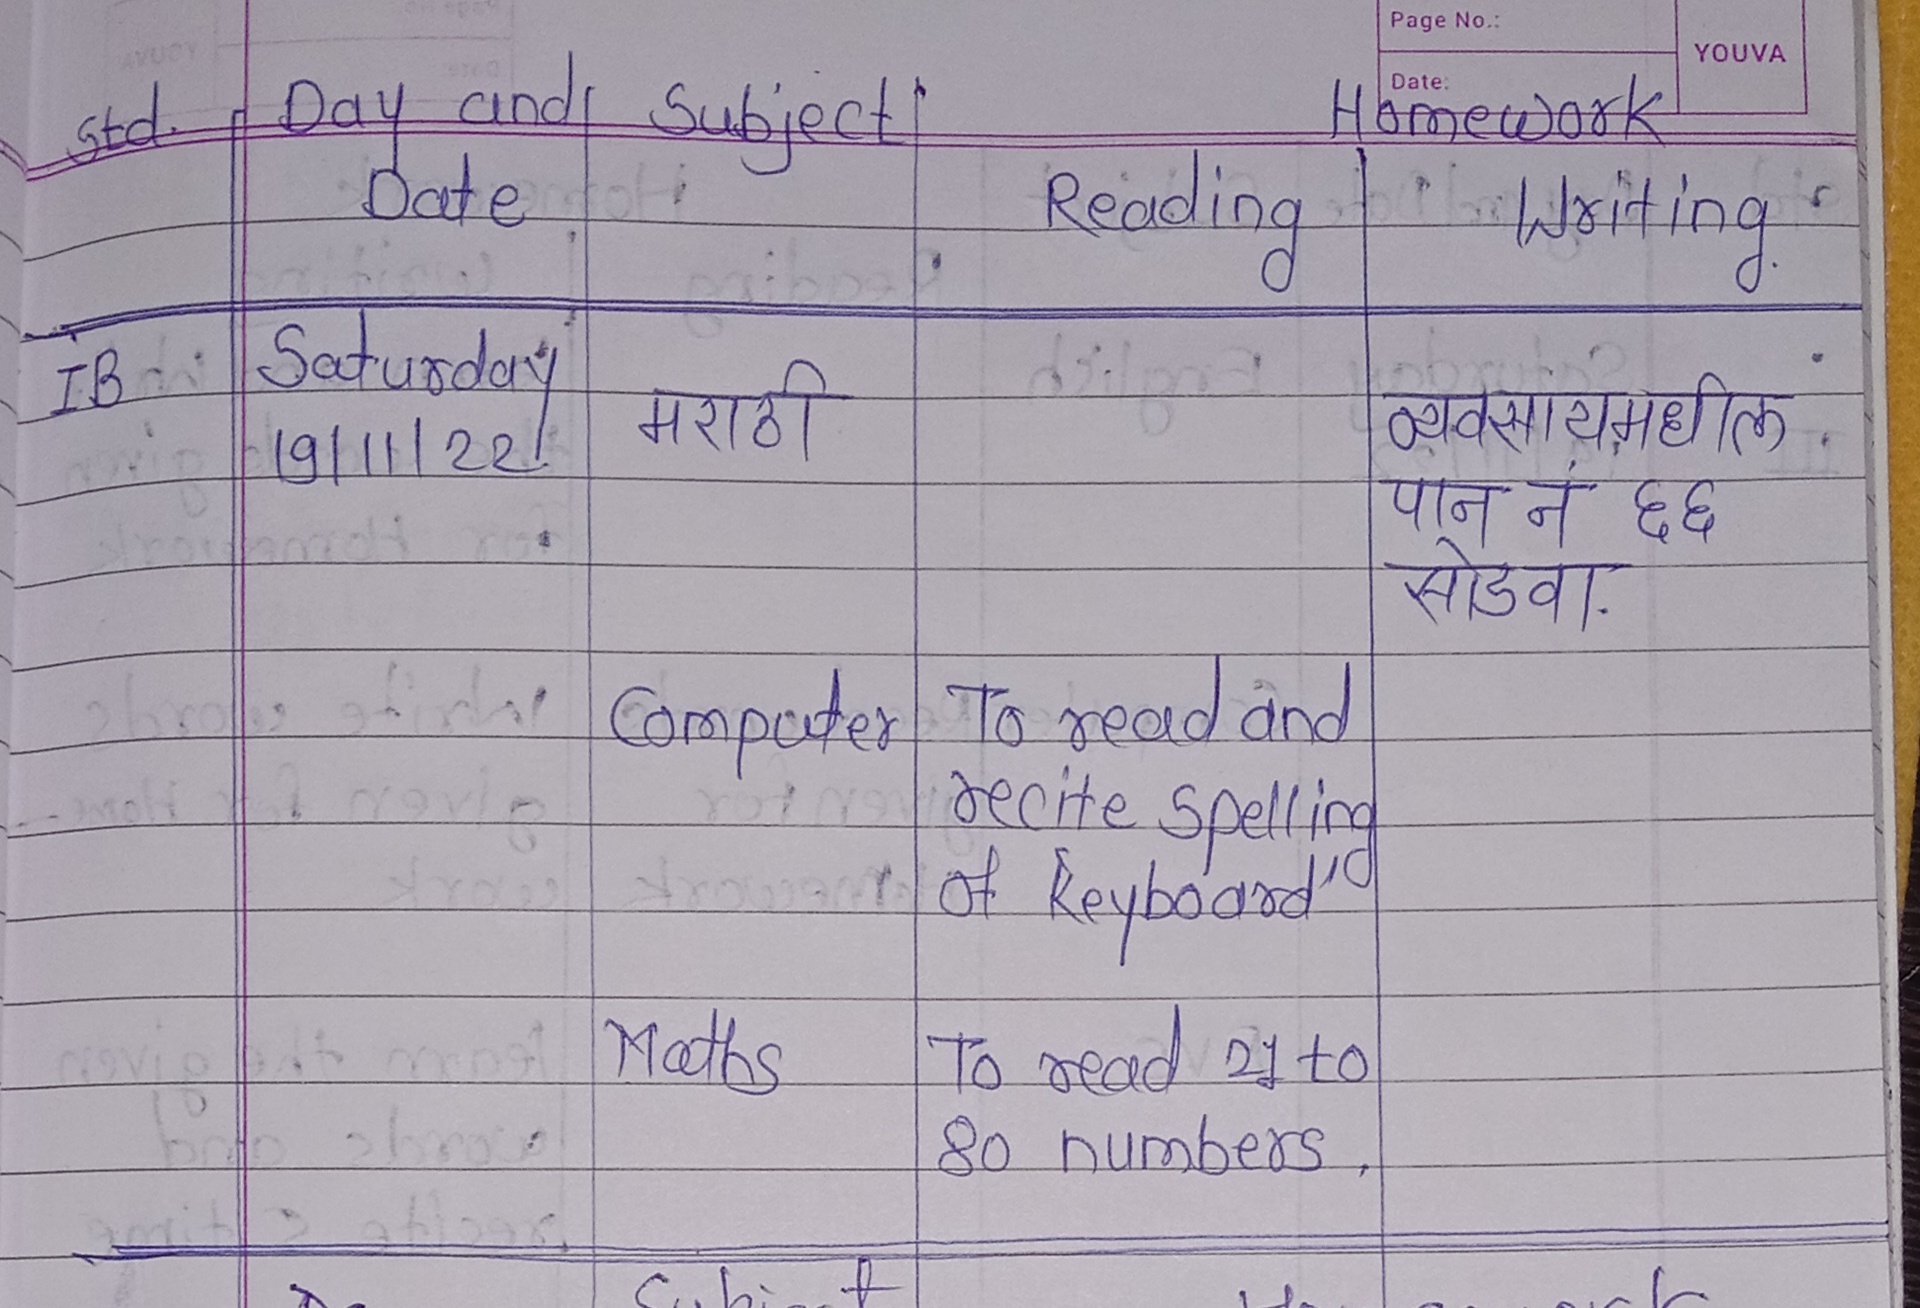 Page No.:
YOUVA
Date:
Std. Day and Subject Homework
Date Reading Writing.
IB Saturday मराठी व्यवसायमधील
19/11/22 पान नं ६६
सोडवा.
Computer To read and
recite spelling
of keyboard"
Maths To read 21 to
80 numbers.
Subject